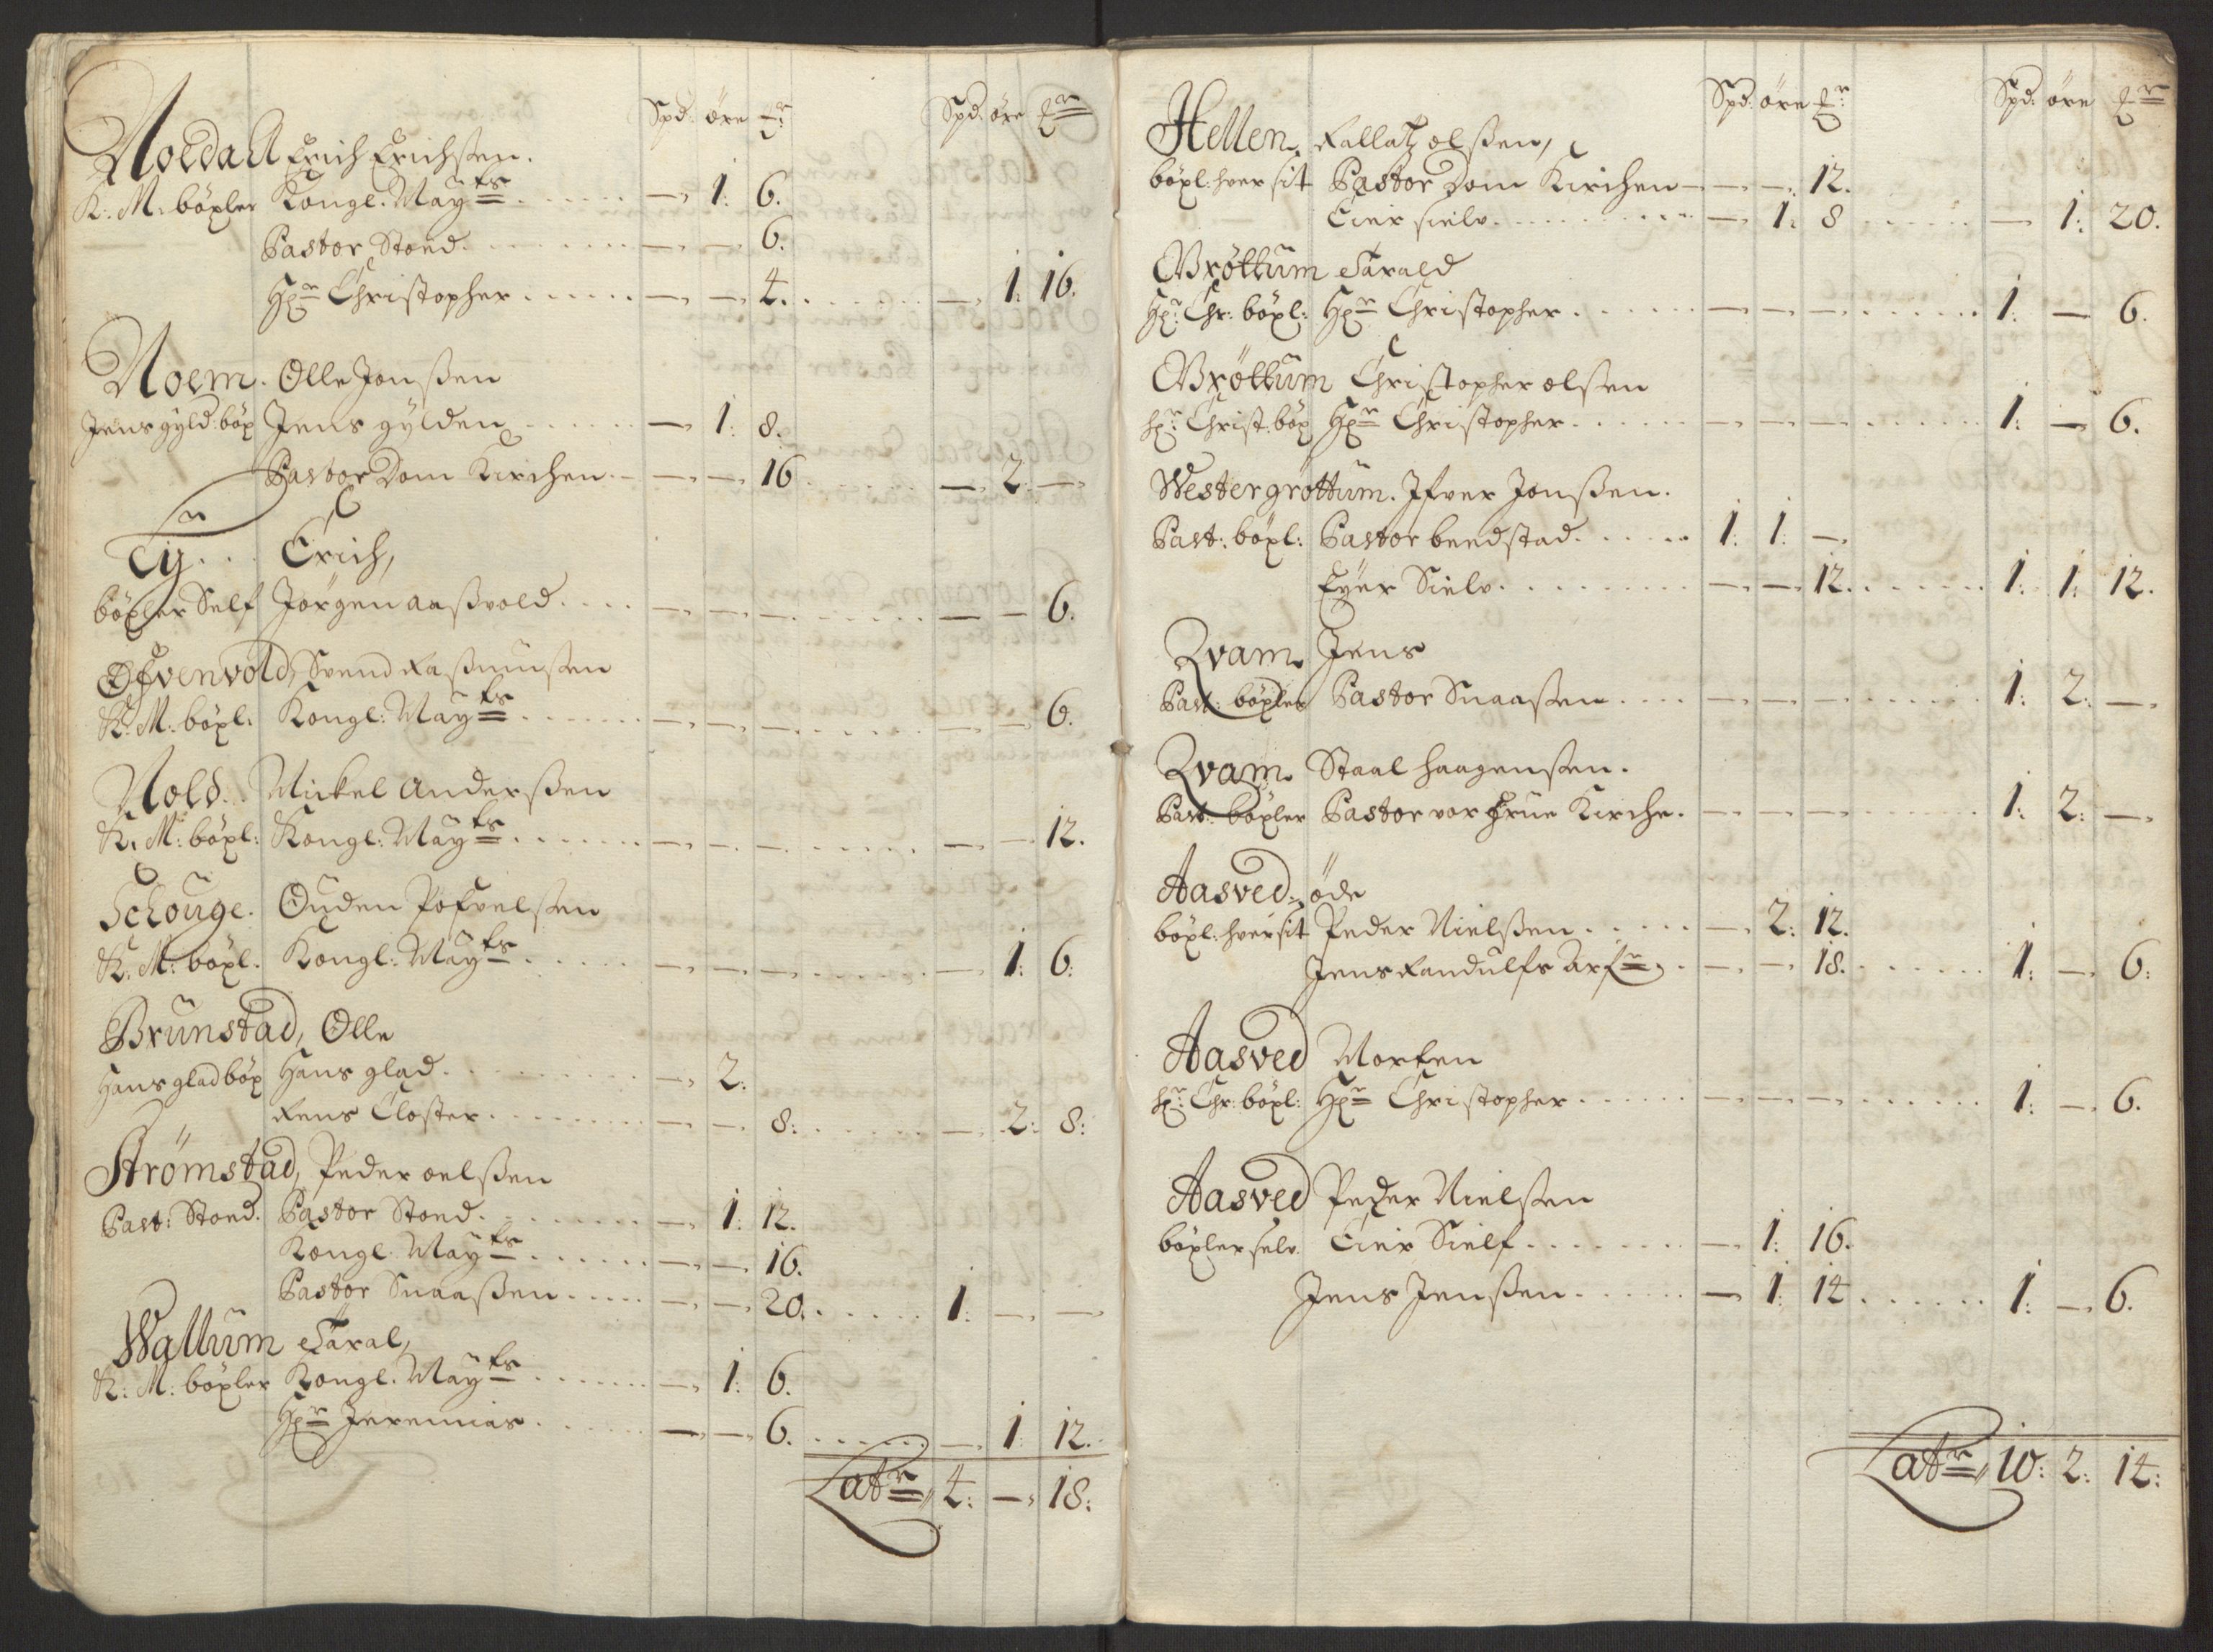 Spd. öre Spd. öre
Noldall Erich Erichsen.
K: M: böxler Kongl. Maÿts — 1: 6.
Pastor Stond. — — 6.
Hr Christopher — — 4. — 1: 16.
Noem. Olle Jonssen
Jens gyld: böx Jens gÿlden — 1: 8.
Pastor Dom Kirchen — — 16 — 2: —
Erich,
böxler Self Jörgen aassvold — — — — — 6.
Öfvenvold, Svend Rassmussen
K: M: böxl: Kongl: Maÿts — — — — — 6.
Nold. Mickel Anderssen
K: M: böxl: Kongl: Maÿts — — — — — 12.
Schouge. Ouden Pofvelsen
K: M: böxl. Kongl: Maÿts — — — — 1: 6:
Brunstad, Olle
Hans glad böx Hans glad. — 2:
Rens Closter — — 8: — 2: 8:
Strömstad, Peder oelssen
Past: Stond. Pastor Stond. — 1: 12.
Kongl. Maÿts — — 16.
Pastor Snaassen — — 20. 1: — —
Wallum Taral,
K: M: böxler Kongl. Maÿts — 1: 6.
Hr Jeremias — — 6. — 1 12.
Latr 4: — 18:
Spd: öre Spd. öre
Hellen. olssen,
böxl: hver sit Pastor Dom Kirchen — — 12.
Eier sielv — 1: 8 — 1: 20.
Gröttum Tarald
Hr: Chr: böxl: Hr Christopher — — — 1: — 6.
Gröttum Christopher olsen
hr: Christ. böx Hr Christopher — — — 1: — 6.
Westergröttum. Ifver Jonssen.
Past: böxl: Pastor beedstad 1: 1: —
Eyer Sielv — — 12. 1: 1: 12.
Qvam. Jens
Past: böxler Pastor Snaassen — — — 1: 2: —
Qvam. Staal haagensen.
Past: böxler Pastor vor frue Kirche. — — — 1: 2: —
Aasved. öde
böxl: hver sit Peder Nielssen — 2: 12.
Jens Randulfs Arfr — — 18. 1: — 6:
Aasved Morten
hr: Chr: böxl: Hr Christopher — — — 1: — 6.
Aasved Peder Nielsen
böxler selv. Eier Sielf — 1: 16.
Jens Jenssen — 1: 14 1: — 6.
Latr 10: 2: 14: